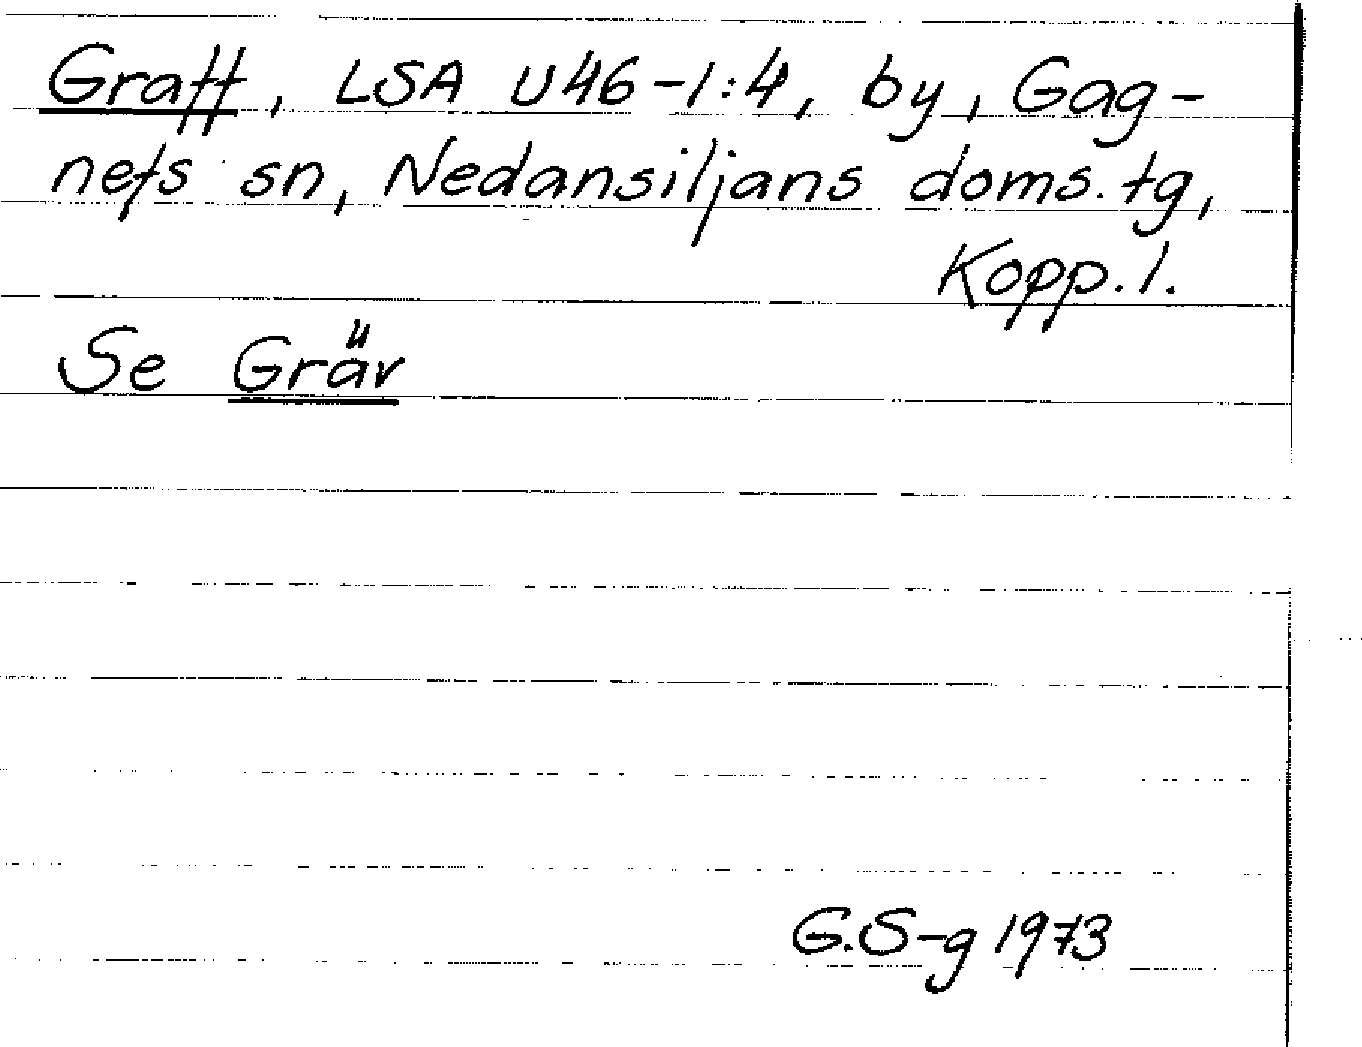 Graff, LSA U46-1:4, by, Gag-
nefs sn, Nedansiljans doms.tg,
Kopp.l.
Se Gräv
G.S-g 1973